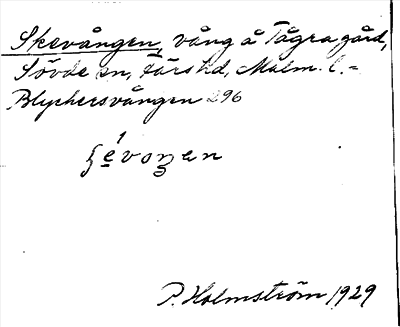 Skevången, vång å Tågra gård,
Sövde sn, Färs hd, Malm. l. =
Blyckersvången 296
P. Holmström 1929